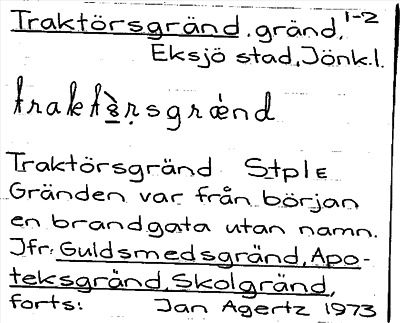 Traktörsgränd, gränd, 1-2
Eksjö stad, Jönk.l.
traktə̀rsgrǽnd
Traktörsgränd StplE
Gränden var från början
en brandgata utan namn.
Jfr: Guldsmedsgränd, Apo-
teksgränd, Skolgränd,
forts: Jan Agertz 1973